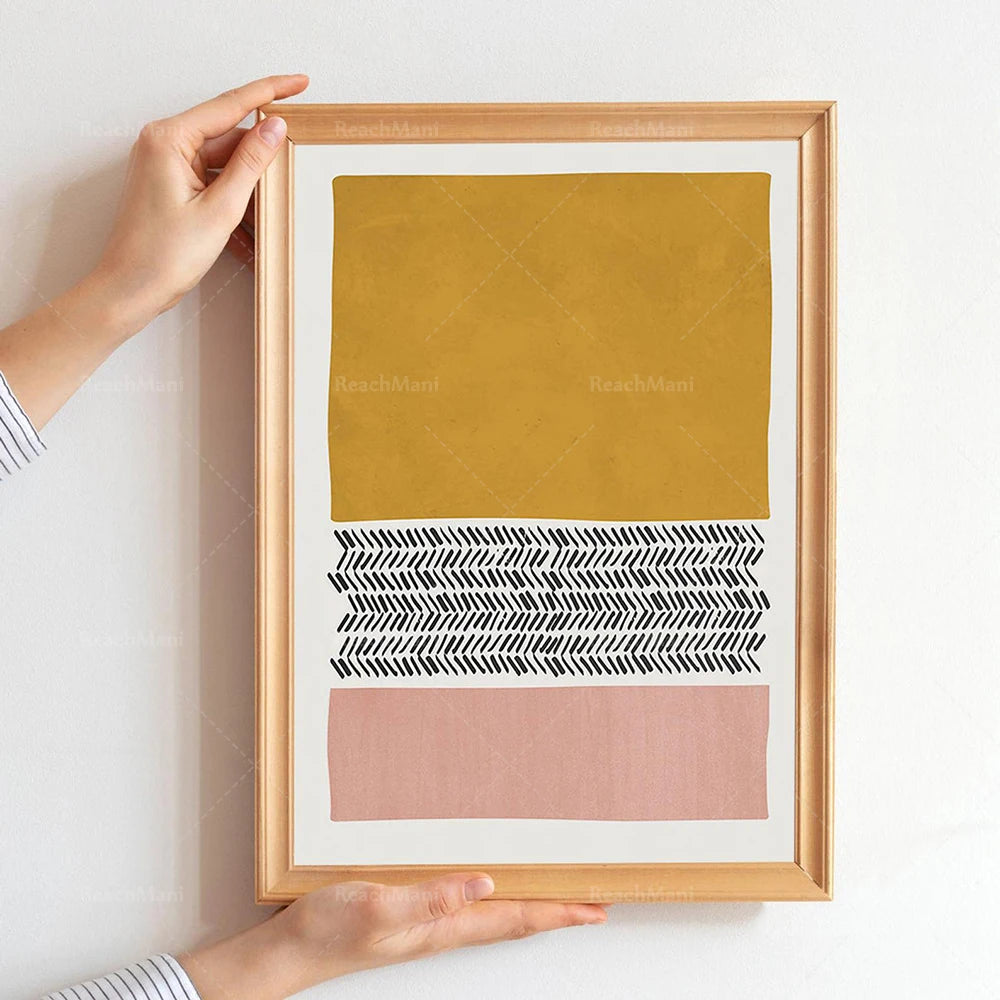 ReachMani ReachMani ReachMani
ReachMani ReachMani ReachMani
ReachMani ReachMani
ReachMani ReachMani ReachMani